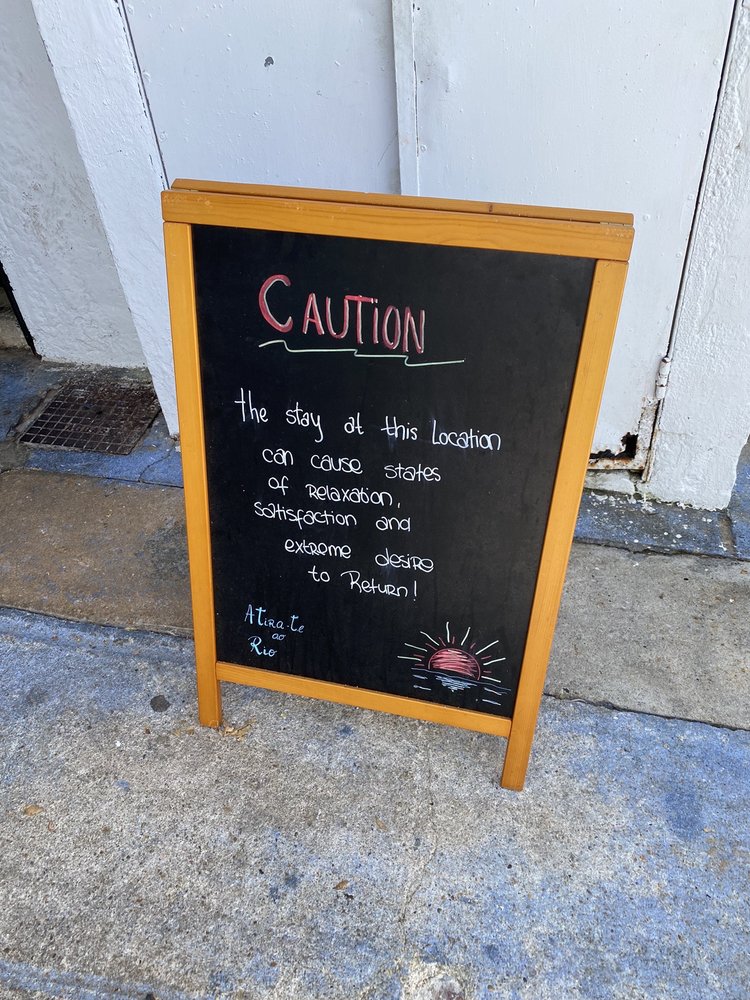 CAUTION
the stay at this Location
can cause states
of Relaxation,
satisfaction and
extreme desire
to Return!
ATIRA-TE
ao
RIO